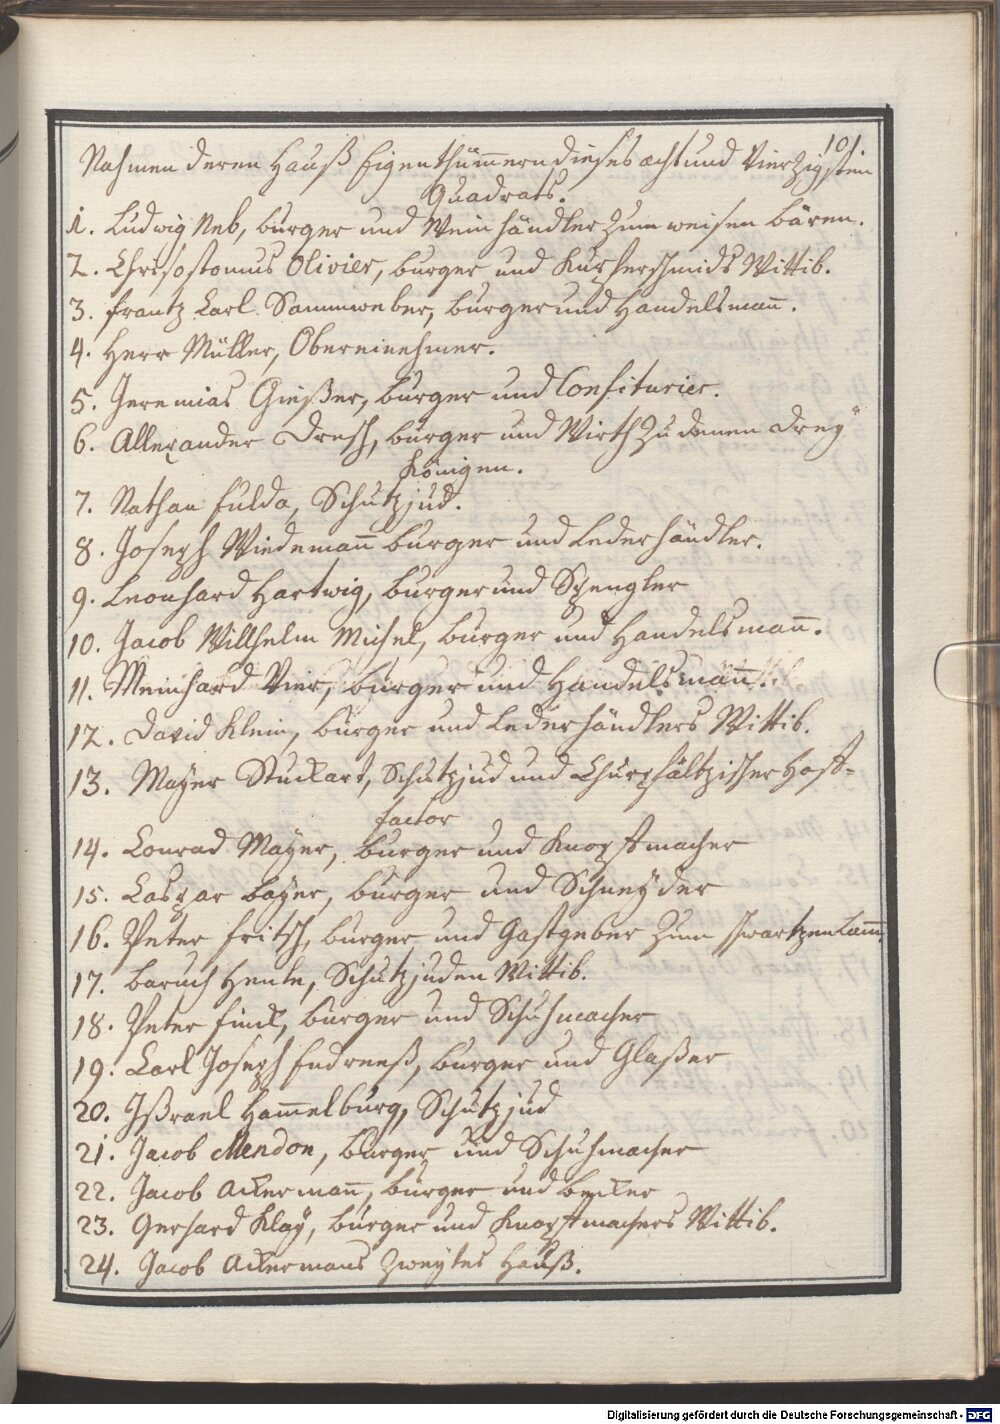 101.
Nahmen deren Hauß Eigenthümmern dieses acht und Vierzigsten
Quadrats.
1. Ludwig Neb, burger und Wein händler zum weisen bären.
2. Chrisostomus Olivier, burger und Kupferschmids Wittib.
3. Frantz Carl Sammweber, burger und Handelsmann.
4. Herr Müller, Obereinehmer.
5. Jeremias Gießer, burger und Confiturier.
6. Allexander Dresch, burger und Wirth zu denen Drey
Königen.
7. Nathan Fulda, Schutzjud.
8. Joseph Wiedemann burger und Lederhändler.
9. Leonhard Hartwig, burger und Spengler
10. Jacob Willhelm Michel, burger und Handelsmann.
11. Meinhard Vier, burger und Handelsmann.
12. David Klein, burger und Lederhändlers Wittib.
13. Mayer Stuckart, Schutzjud und Churpfältzischer Hoff-
factor
14. Conrad Mayer, burger und Knopffmacher
15. Caspar bayer, burger und Schneyder
16. Peter Fritsch, burger und Gastgeber zum schwartzen Lamm.
17. baruch Henle, Schutzjuden Wittib.
18. Peter Finck, burger und Schuhmacher
19. Carl Joseph Endreeß, burger und Glaßer
20. Ißrael Hammelburg, Schutzjud
21. Jacob Mendon, burger und Schuhmacher
22. Jacob Ackermann, burger und becker
23. Gerhard Klay, burger und Knopffmachers Wittib.
24. Jacob Ackermans Zweytes Hauß.
Digitalisierung gefördert durch die Deutsche Forschungsgemeinschaft - DFG